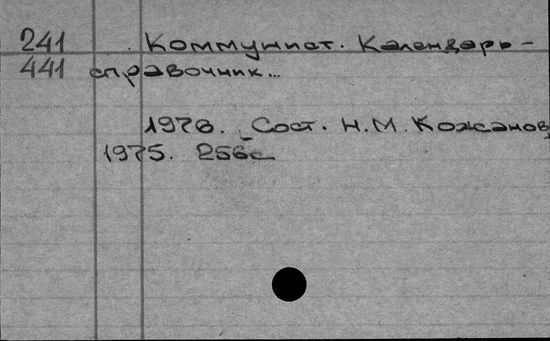 241 Коммунист. Календарь-
441 справочник...
1976. Сост. Н.М. Кожанов
1975. 256с